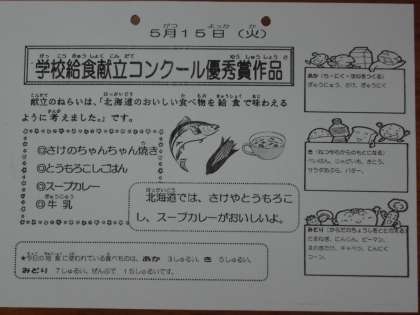 5月15日（火）
学校給食献立コンクール優秀賞作品
献立のねらいは、「北海道のおいしい食べ物を給食で味わえる
ように考えました。」です。
◎さけのちゃんちゃん焼き
◎とうもろこしごはん
◎スープカレー
◎牛乳
北海道では、さけやとうもろこ
し、スープカレーがおいしいよ。
★今日の給食に使われている食べものは、あか 3しゅるい、き 5しゅるい、
みどり 7しゅるい、ぜんぶで 15しゅるいです。
あか（ち・にく・ほねをつくる）
ぎゅうにゅう、さけ、ぎゅうにく
き（ねつやちからのもとになる）
サラダあぶら、バター、
みどり（からだのちょうしをととのえる）
たまねぎ、にんじん、ピーマン、
キャベツ、にんにく
コーン、